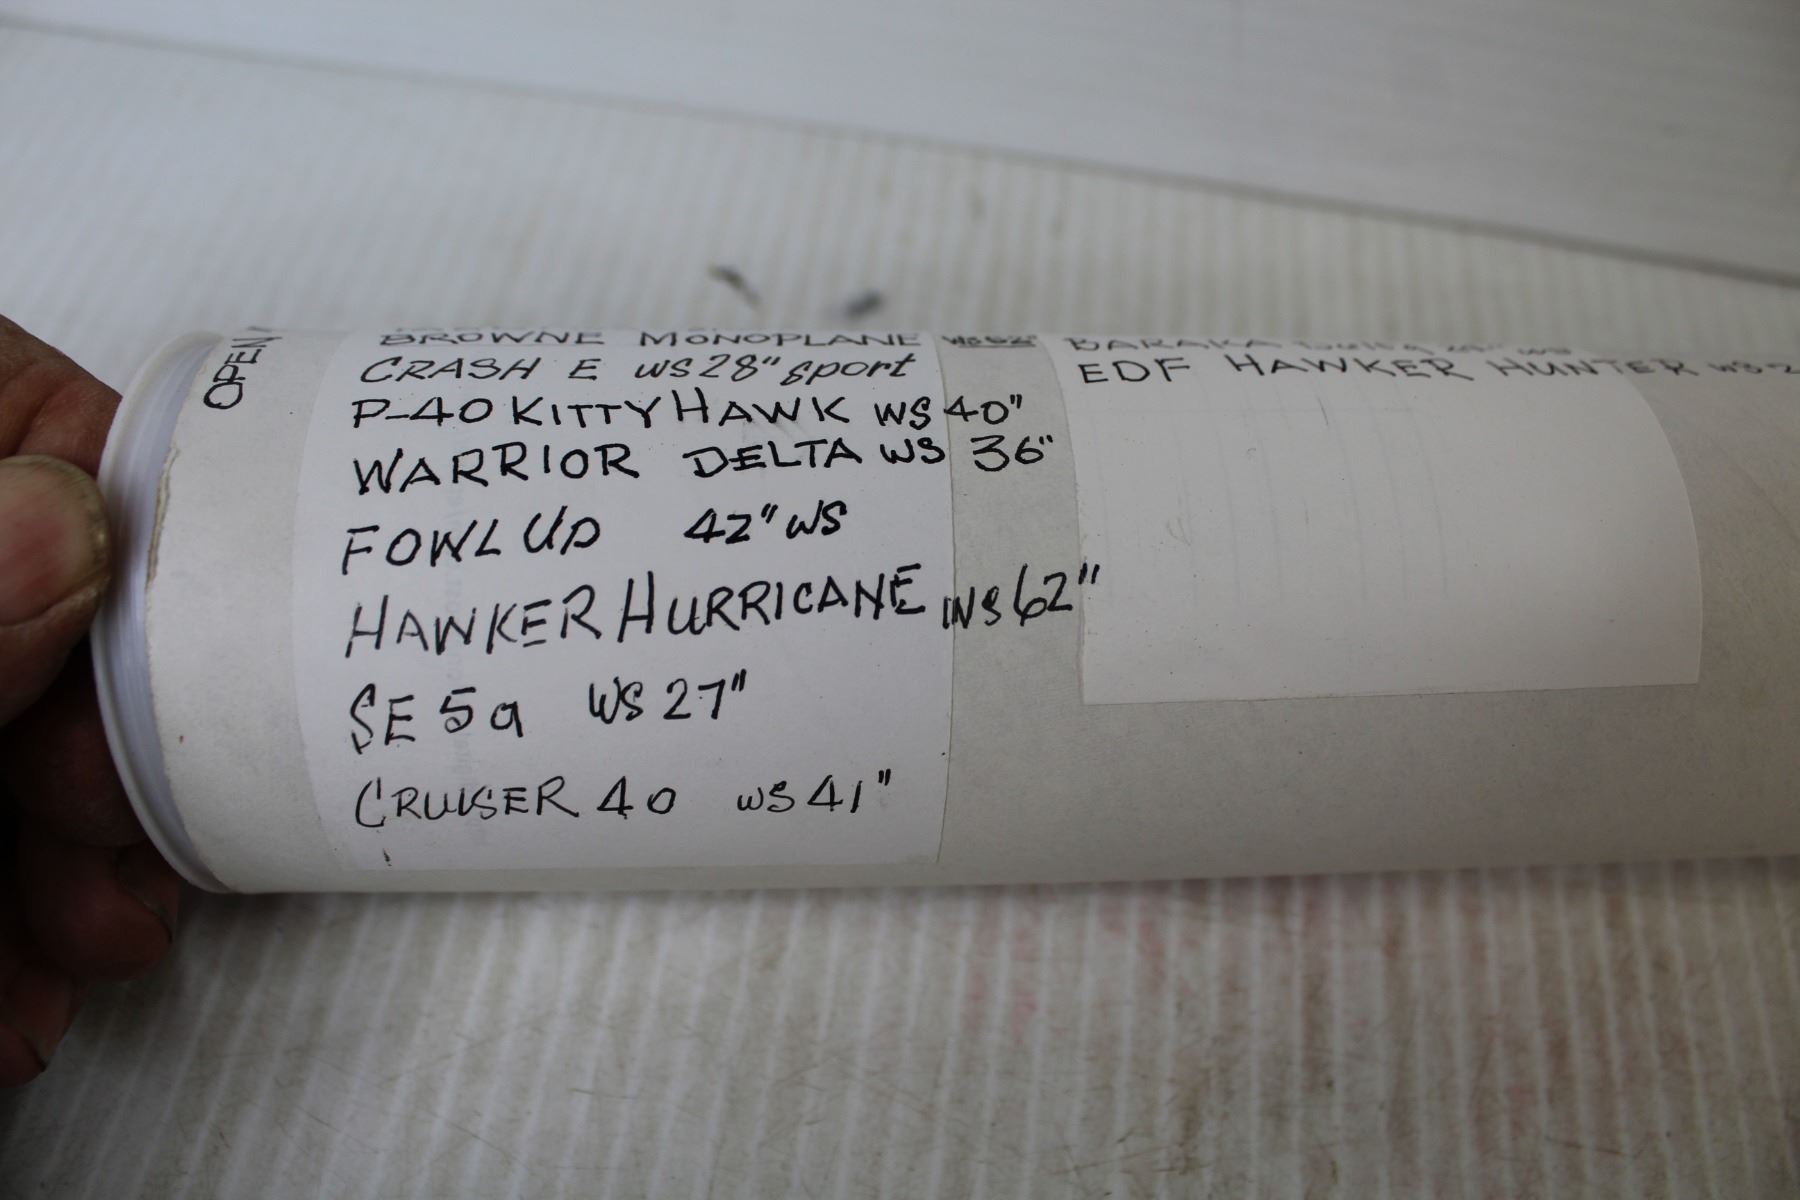 OPEN
BROWNE MONOPLANE WS 62"
CRASH E WS 28" sport
P-40 KITTYHAWK WS 40"
WARRIOR DELTA WS 36"
FOWL UP 42" WS
HAWKER HURRICANE WS 62"
SE 5a WS 27"
CRUISER 40 WS 41"
BARAKA
EDF HAWKER HUNTER WS